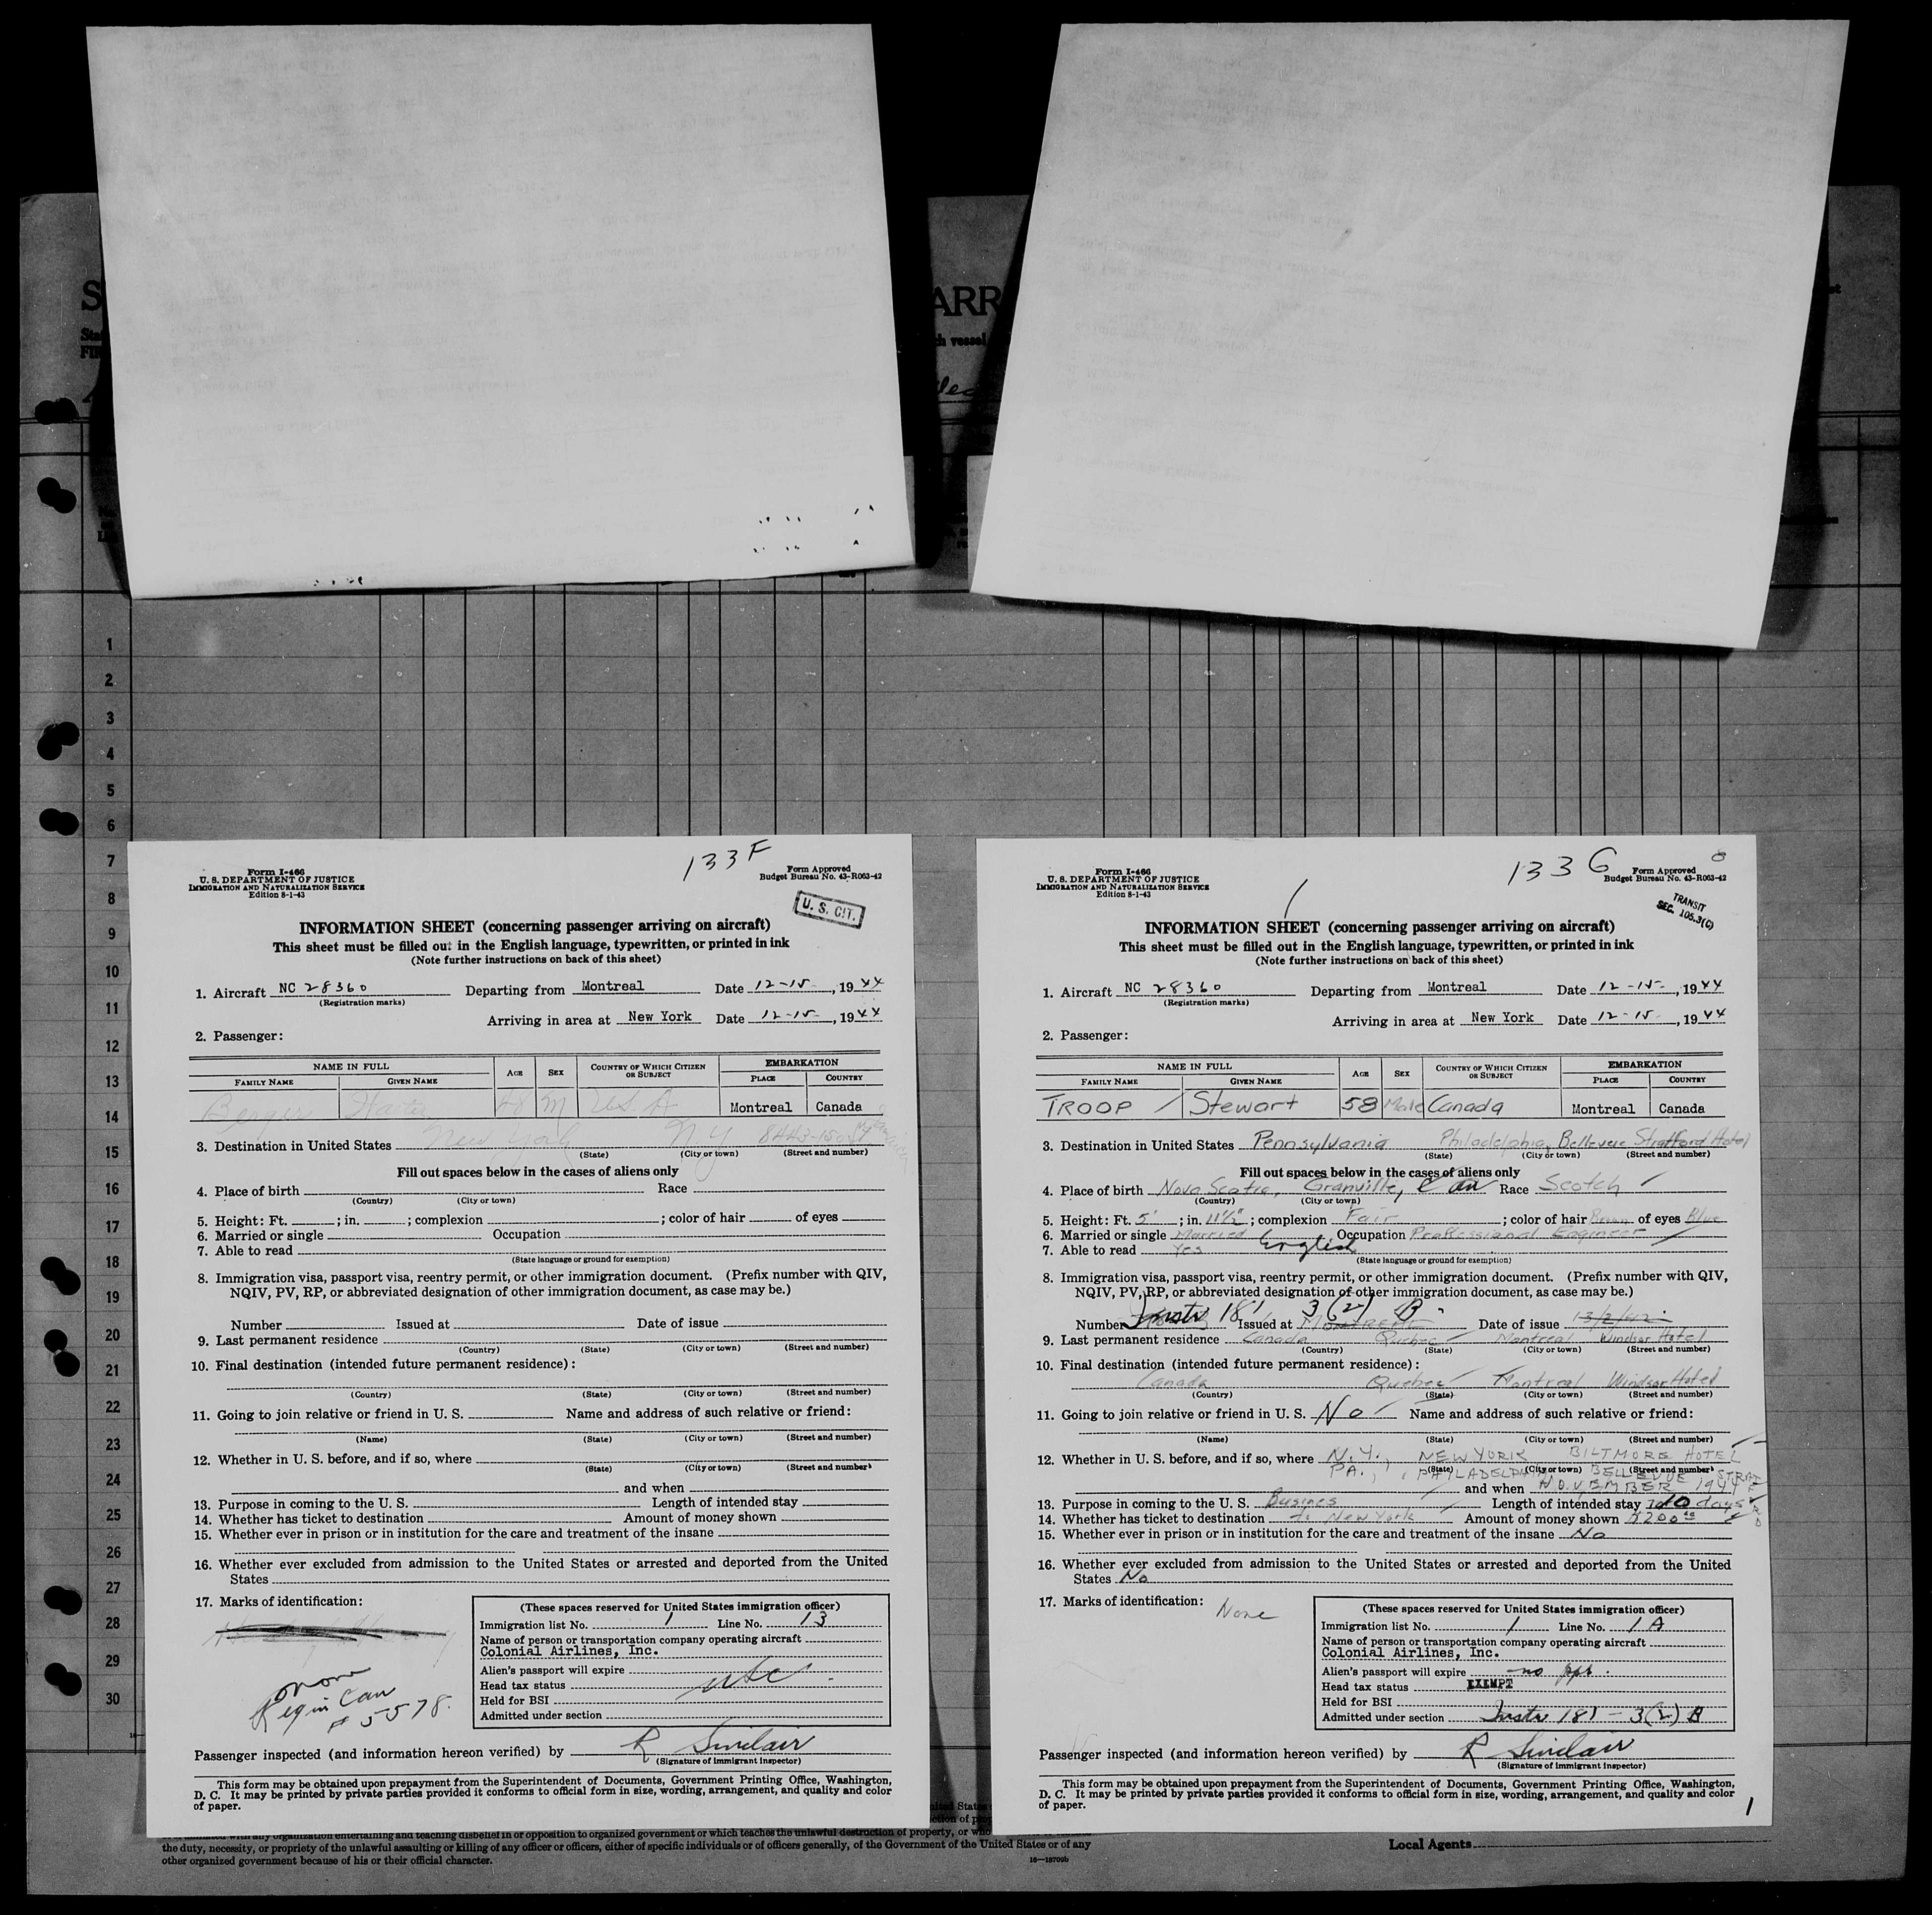 1
2
3
4
5
6
7
8
9
10
11
12
13
14
15
16
17
18
19
20
21
22
23
24
25
26
27
28
29
30
133 F
Form I-466
U. S. DEPARTMENT OF JUSTICE
IMMIGRATION AND NATURALIZATION SERVICE
Edition 8-1-43
Form Approved
Budget Bureau No. 43-R063-42
U. S. CIT.
INFORMATION SHEET (concerning passenger arriving on aircraft)
This sheet must be filled out in the English language, typewritten, or printed in ink
(Note further instructions on back of this sheet)
1. Aircraft NC 28360 Departing from Montreal Date 12-15-, 1944
(Registration marks)
Arriving in area at New York Date 12-15-, 1944
2. Passenger:
NAME IN FULL AGE SEX COUNTRY OF WHICH CITIZEN OR SUBJECT EMBARKATION
FAMILY NAME GIVEN NAME PLACE COUNTRY
Berger M USA Montreal Canada
3. Destination in United States New York N Y
(State) (City or town) (Street and number)
Fill out spaces below in the cases of aliens only
4. Place of birth Race
(Country) (City or town)
5. Height: Ft. ; in. ; complexion ; color of hair of eyes
6. Married or single Occupation
7. Able to read
(State language or ground for exemption)
8. Immigration visa, passport visa, reentry permit, or other immigration document. (Prefix number with QIV,
NQIV, PV, RP, or abbreviated designation of other immigration document, as case may be.)
Number Issued at Date of issue
9. Last permanent residence
(Country) (State) (City or town) (Street and number)
10. Final destination (intended future permanent residence):
(Country) (State) (City or town) (Street and number)
11. Going to join relative or friend in U. S. Name and address of such relative or friend:
(Name) (State) (City or town) (Street and number)
12. Whether in U. S. before, and if so, where
(State) (City or town) (Street and number)
and when
13. Purpose in coming to the U. S. Length of intended stay
14. Whether has ticket to destination Amount of money shown
15. Whether ever in prison or in institution for the care and treatment of the insane
16. Whether ever excluded from admission to the United States or arrested and deported from the United
States
17. Marks of identification:
(These spaces reserved for United States immigration officer)
Immigration list No. 1 Line No. 13
Name of person or transportation company operating aircraft
Colonial Airlines, Inc.
Alien's passport will expire
Head tax status usc
Held for BSI
Admitted under section
# 5578.
Passenger inspected (and information hereon verified) by R Sinclair
(Signature of immigrant inspector)
This form may be obtained upon prepayment from the Superintendent of Documents, Government Printing Office, Washington,
D. C. It may be printed by private parties provided it conforms to official form in size, wording, arrangement, and quality and color
of paper.
133 G
Form I-466
U. S. DEPARTMENT OF JUSTICE
IMMIGRATION AND NATURALIZATION SERVICE
Edition 8-1-43
Form Approved
Budget Bureau No. 43-R063-42
TRANSIT
SEC. 105.3(C)
INFORMATION SHEET (concerning passenger arriving on aircraft)
This sheet must be filled out in the English language, typewritten, or printed in ink
(Note further instructions on back of this sheet)
1. Aircraft NC 28360 Departing from Montreal Date 12-15-, 1944
(Registration marks)
Arriving in area at New York Date 12-15-, 1944
2. Passenger:
NAME IN FULL AGE SEX COUNTRY OF WHICH CITIZEN OR SUBJECT EMBARKATION
FAMILY NAME GIVEN NAME PLACE COUNTRY
TROOP Stewart 58 Male Canada Montreal Canada
3. Destination in United States Pennsylvania Philadelphia, Bellevue Stratford Hotel
(State) (City or town) (Street and number)
Fill out spaces below in the cases of aliens only
4. Place of birth Nova Scotia, Granville, Can Race Scotch
(Country) (City or town)
5. Height: Ft. 5' ; in. 11½" ; complexion Fair ; color of hair Brown of eyes Blue
6. Married or single Married Occupation Professional Engineer
7. Able to read Yes English
(State language or ground for exemption)
8. Immigration visa, passport visa, reentry permit, or other immigration document. (Prefix number with QIV,
NQIV, PV, RP, or abbreviated designation of other immigration document, as case may be.)
Number Instr 181 3(2) B Issued at Montreal Date of issue 13/2/42
9. Last permanent residence Canada Quebec Montreal Windsor Hotel
(Country) (State) (City or town) (Street and number)
10. Final destination (intended future permanent residence):
Canada Quebec Montreal Windsor Hotel
(Country) (State) (City or town) (Street and number)
11. Going to join relative or friend in U. S. No Name and address of such relative or friend:
(Name) (State) (City or town) (Street and number)
12. Whether in U. S. before, and if so, where N.Y., NEW YORK BILTMORE HOTEL
(State) (City or town) (Street and number)
PA., PHILADELPHIA BELLEVUE STRATFORD
and when NOVEMBER 1944
13. Purpose in coming to the U. S. Busines Length of intended stay 10 days
14. Whether has ticket to destination to New York Amount of money shown $200.00
15. Whether ever in prison or in institution for the care and treatment of the insane No
16. Whether ever excluded from admission to the United States or arrested and deported from the United
States No
17. Marks of identification: None
(These spaces reserved for United States immigration officer)
Immigration list No. 1 Line No. 1 A
Name of person or transportation company operating aircraft
Colonial Airlines, Inc.
Alien's passport will expire no ppt.
Head tax status EXEMPT
Held for BSI
Admitted under section Instr 181 - 3(2) B
Passenger inspected (and information hereon verified) by R Sinclair
(Signature of immigrant inspector)
This form may be obtained upon prepayment from the Superintendent of Documents, Government Printing Office, Washington,
D. C. It may be printed by private parties provided it conforms to official form in size, wording, arrangement, and quality and color
of paper.
1
the duty, necessity, or propriety of the unlawful assaulting or killing of any officer or officers, either of specific individuals or of officers generally, of the Government of the United States or of any
other organized government because of his or their official character.
16—18709b
Local Agents